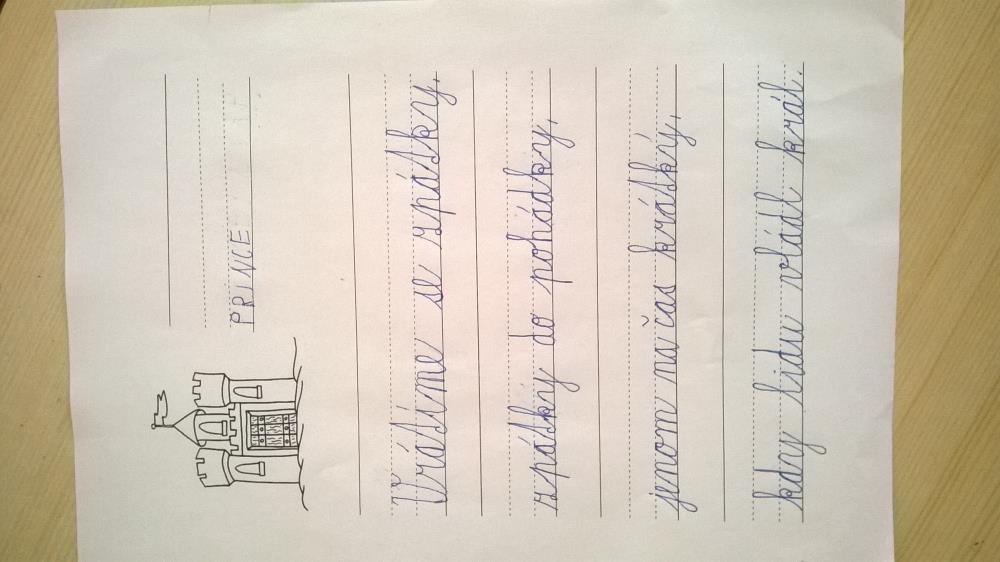 PRINCE
Vrátíme se zpátky,
zpátky do pohádky,
jenom na čas krátký,
kdy lidu vládl král.